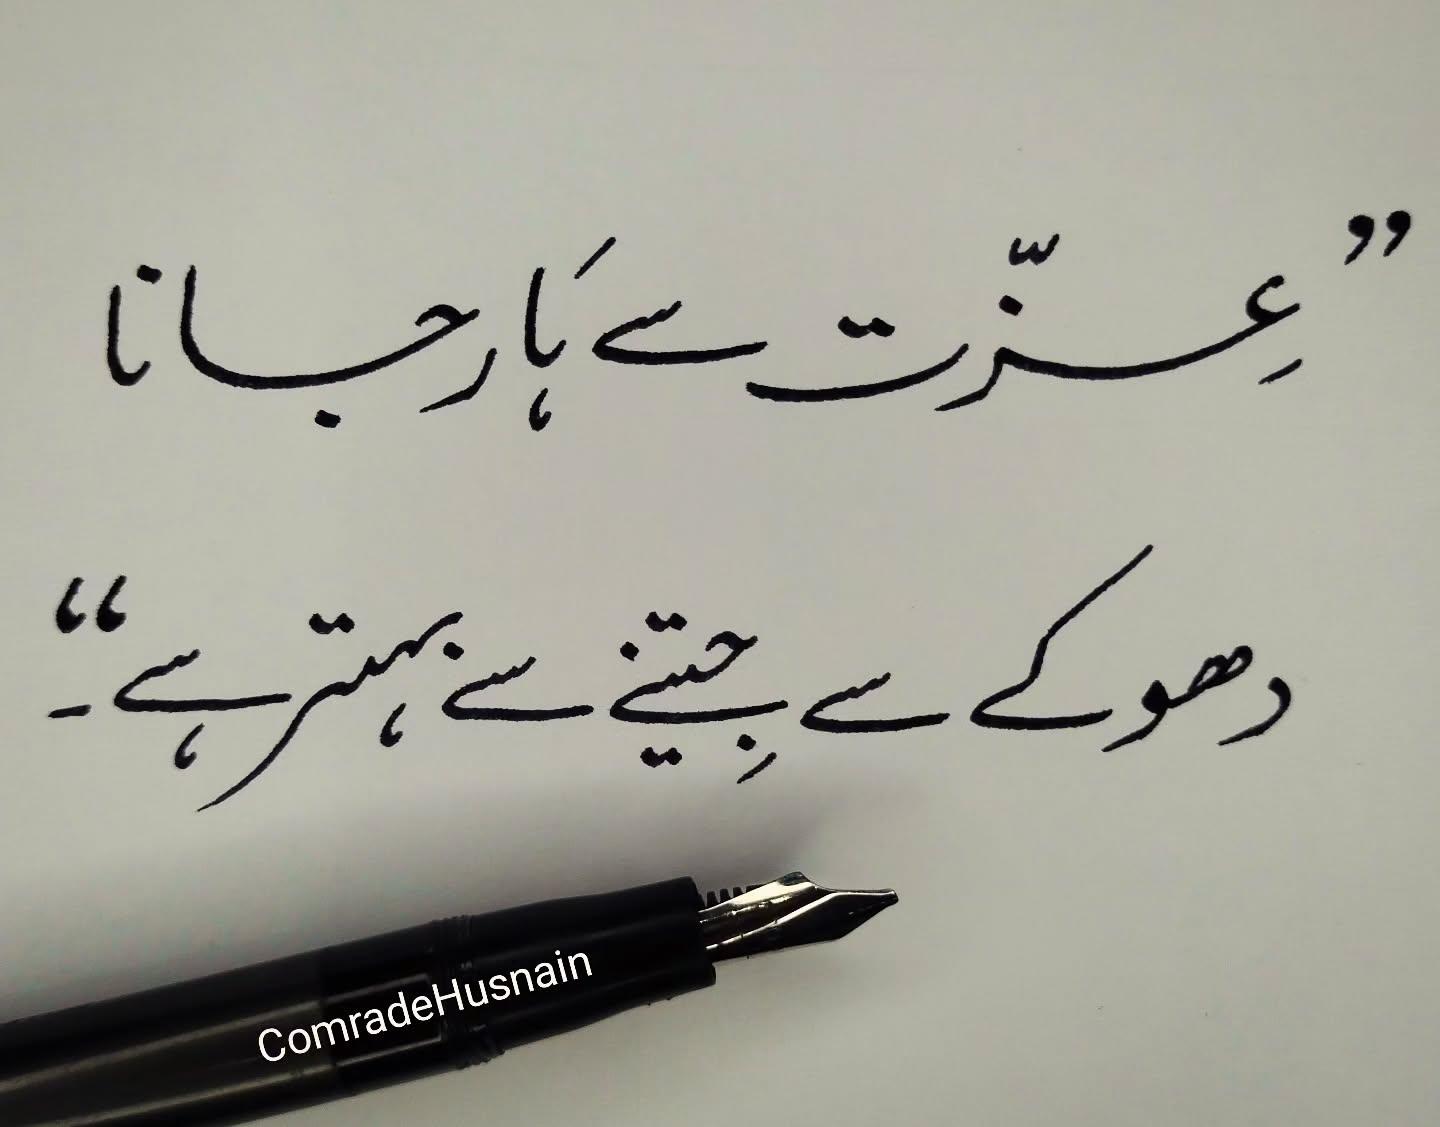 ”عِزّت سے ہَار جانا
دھوکے سے جِتنے سے بہتر ہے۔“
ComradeHusnain